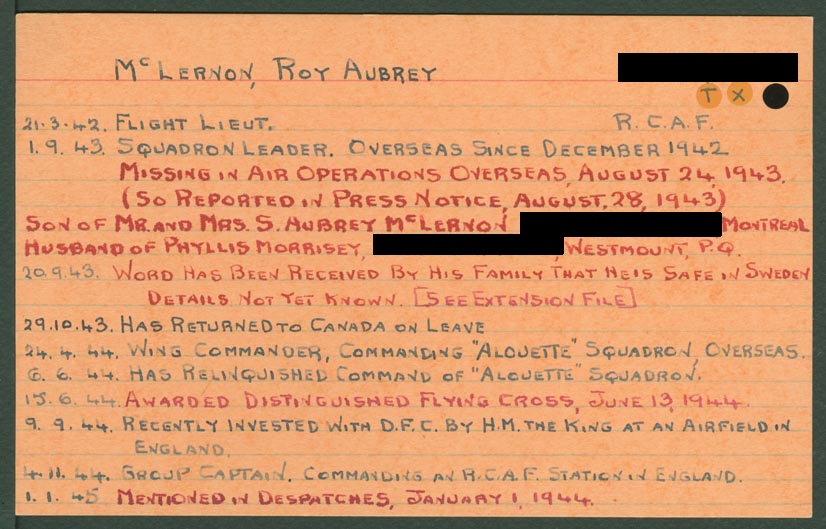 McLERNON, ROY AUBREY
T X
21.3.42. FLIGHT LIEUT. R.C.A.F.
1.9.43. SQUADRON LEADER. OVERSEAS SINCE DECEMBER 1942
MISSING IN AIR OPERATIONS OVERSEAS, AUGUST 24, 1943.
(SO REPORTED IN PRESS NOTICE, AUGUST, 28, 1943)
SON OF MR. AND MRS. S. AUBREY McLERNON MONTREAL
HUSBAND OF PHYLLIS MORRISEY, WESTMOUNT, P.Q.
20.9.43. WORD HAS BEEN RECEIVED BY HIS FAMILY THAT HE IS SAFE IN SWEDEN
DETAILS NOT YET KNOWN. [SEE EXTENSION FILE]
29.10.43. HAS RETURNED TO CANADA ON LEAVE
24.4.44. WING COMMANDER, COMMANDING "ALOUETTE" SQUADRON, OVERSEAS.
6.6.44. HAS RELINQUISHED COMMAND OF "ALOUETTE" SQUADRON.
15.6.44. AWARDED DISTINGUISHED FLYING CROSS, JUNE 13, 1944.
9.9.44. RECENTLY INVESTED WITH D.F.C. BY H.M. THE KING AT AN AIRFIELD IN
ENGLAND.
4.11.44. GROUP CAPTAIN. COMMANDING AN R.C.A.F. STATION IN ENGLAND.
1.1.45 MENTIONED IN DESPATCHES, JANUARY 1, 1944.